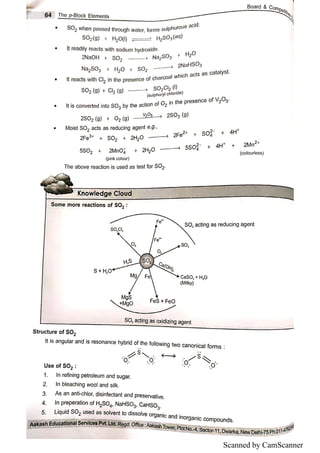 Board & Competitive
64 The p-Block Elements
• SO2 when passed through water, forms sulphurous acid.
SO2(g) + H2O(l) ⇌ H2SO3(aq)
• It readily reacts with sodium hydroxide.
2NaOH + SO2 ⟶ Na2SO3 + H2O
Na2SO3 + H2O + SO2 ⟶ 2NaHSO3
• It reacts with Cl2 in the presence of charcoal which acts as catalyst.
SO2 (g) + Cl2 (g) ⟶ SO2Cl2 (l)
(sulphuryl chloride)
• It is converted into SO3 by the action of O2 in the presence of V2O5.
2SO2 (g) + O2 (g) V2O5⟶ 2SO3 (g)
• Moist SO2 acts as reducing agent e.g.,
2Fe3+ + SO2 + 2H2O ⟶ 2Fe2+ + SO4 2– + 4H+
5SO2 + 2MnO4– + 2H2O ⟶ 5SO4 2– + 4H+ + 2Mn2+
(pink colour) (colourless)
The above reaction is used as test for SO2.
Knowledge Cloud
Some more reactions of SO2 :
Fe2+
SO2 acting as reducing agent
SO2Cl2
Fe3+
Cl2
O2
SO3
H2S
SO2
Ca(OH)2
S + H2O
Mg
Fe
CaSO3 + H2O
(Milky)
MgS
+MgO
FeS + FeO
SO2 acting as oxidizing agent
Structure of SO2
It is angular and is resonance hybrid of the following two canonical forms :
S ⟷ S
O O O O
Use of SO2 :
1. In refining petroleum and sugar.
2. In bleaching wool and silk.
3. As an anti-chlor, disinfectant and preservative.
4. In preparation of H2SO4, NaHSO3, CaHSO3.
5. Liquid SO2 used as solvent to dissolve organic and inorganic compounds.
Aakash Educational Services Pvt. Ltd. Regd. Office : Aakash Tower, Plot No.-4, Sector-11, Dwarka, New Delhi-75
Scanned by CamScanner